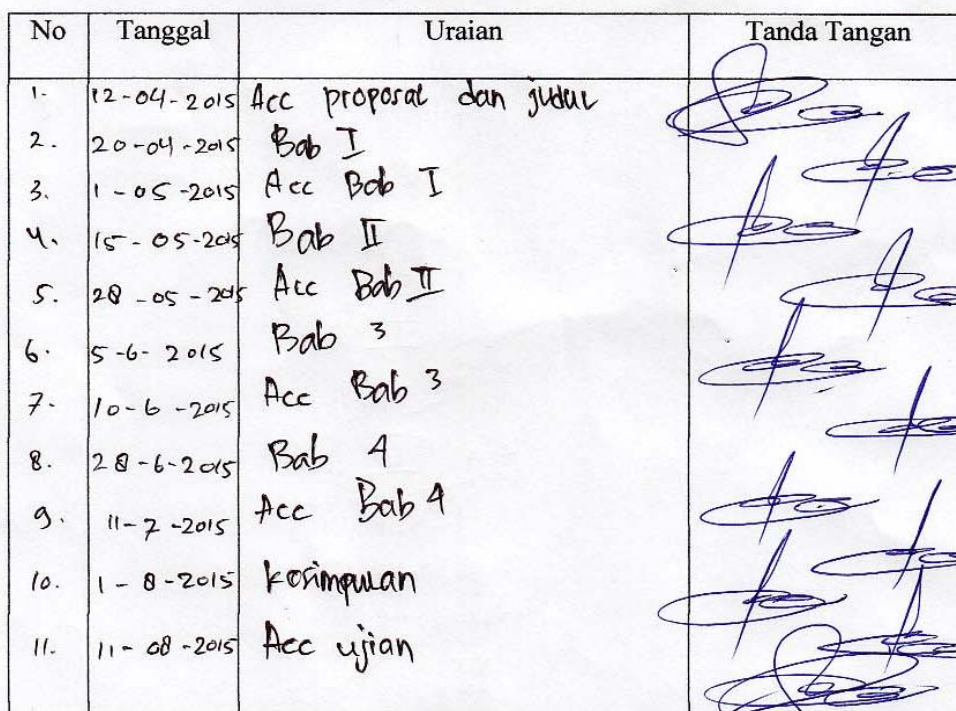 No Tanggal Uraian Tanda Tangan
1. 12-04-2015 Acc proposal dan judul
2. 20-04-2015 Bab I
3. 1-05-2015 Acc Bab I
4. 15-05-2015 Bab II
5. 28-05-2015 Acc Bab II
6. 5-6-2015 Bab 3
7. 10-6-2015 Acc Bab 3
8. 28-6-2015 Bab 4
9. 11-7-2015 Acc Bab 4
10. 1-8-2015 Kesimpulan
11. 11-08-2015 Acc ujian